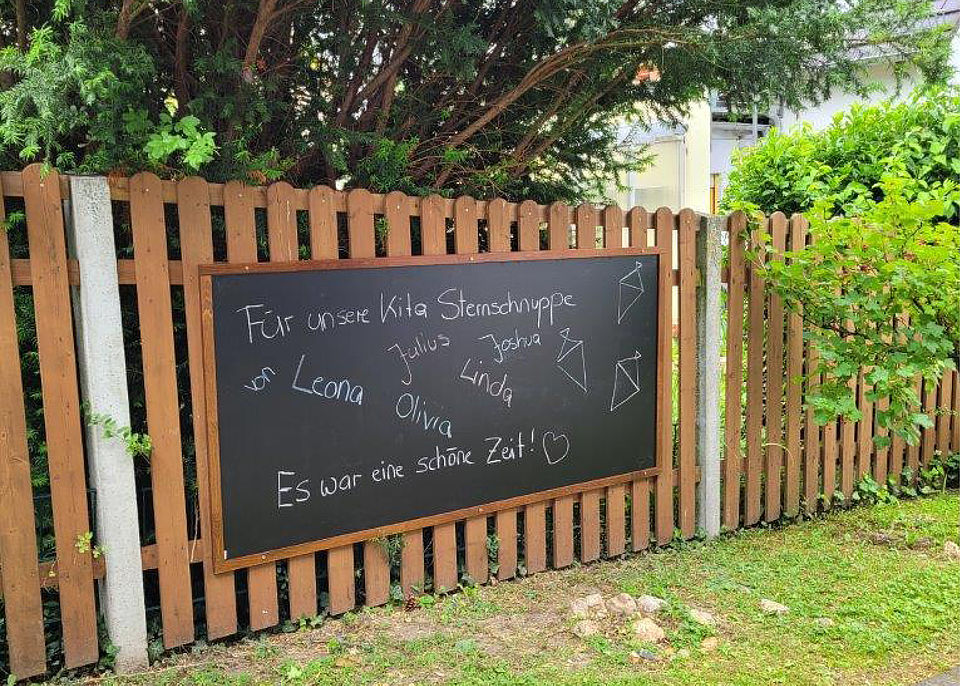 Für unsere Kita Sternschnuppe
Julius Joshua
von Leona Linda
Olivia
Es war eine schöne Zeit!